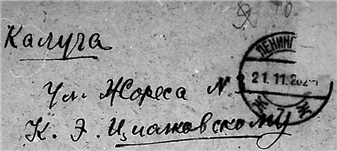 Калуга
Ул. Жореса N 3
К. Э. Циолковскому
ЛЕНИНГ
21.11.